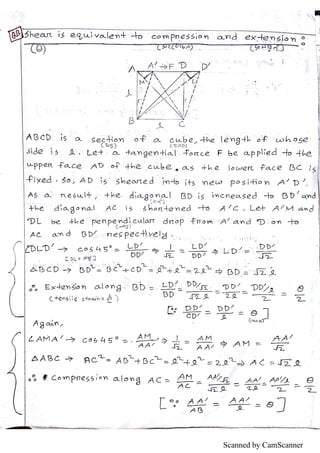 Shear is equivalent to compression and extension :
(θ)
A A'→F D D'
M L
B l C
ABCD is a section of a cube, the length of whose
side is l. Let a tangential force F be applied to the
upper face AD of the cube, as the lower face BC is
fixed. So, AD is sheared into its new position A'D'.
As a result, the diagonal BD is increased to BD' and
the diagonal AC is shortened to A'C. Let A'M and
DL be the perpendicular drop from A' and D on to
AC and BD' respectively.
∠DL'D → cos 45° = LD'/DD' ⇒ 1/√2 = LD'/DD' ⇒ LD' = DD'/√2
ΔBCD → BD² = BC²+CD² = l²+l² = 2l² ⇒ BD = √2 l
∴ Extension along BD = LD'/BD = DD'/√2/√2 l = DD'/2l = DD'/l/2 = θ/2
(tensile strain)
[∵ DD'/CD = DD'/l = θ]
Again,
∠AMA' → cos 45° = AM/AA' ⇒ 1/√2 = AM/AA' ⇒ AM = AA'/√2
ΔABC → AC² = AB²+BC² = l²+l² = 2l² ⇒ AC = √2 l
∴ Compression along AC = AM/AC = AA'/√2/√2 l = AA'/2l = AA'/l/2 = θ/2
[∵ AA'/AB = AA'/l = θ]
Scanned by CamScanner